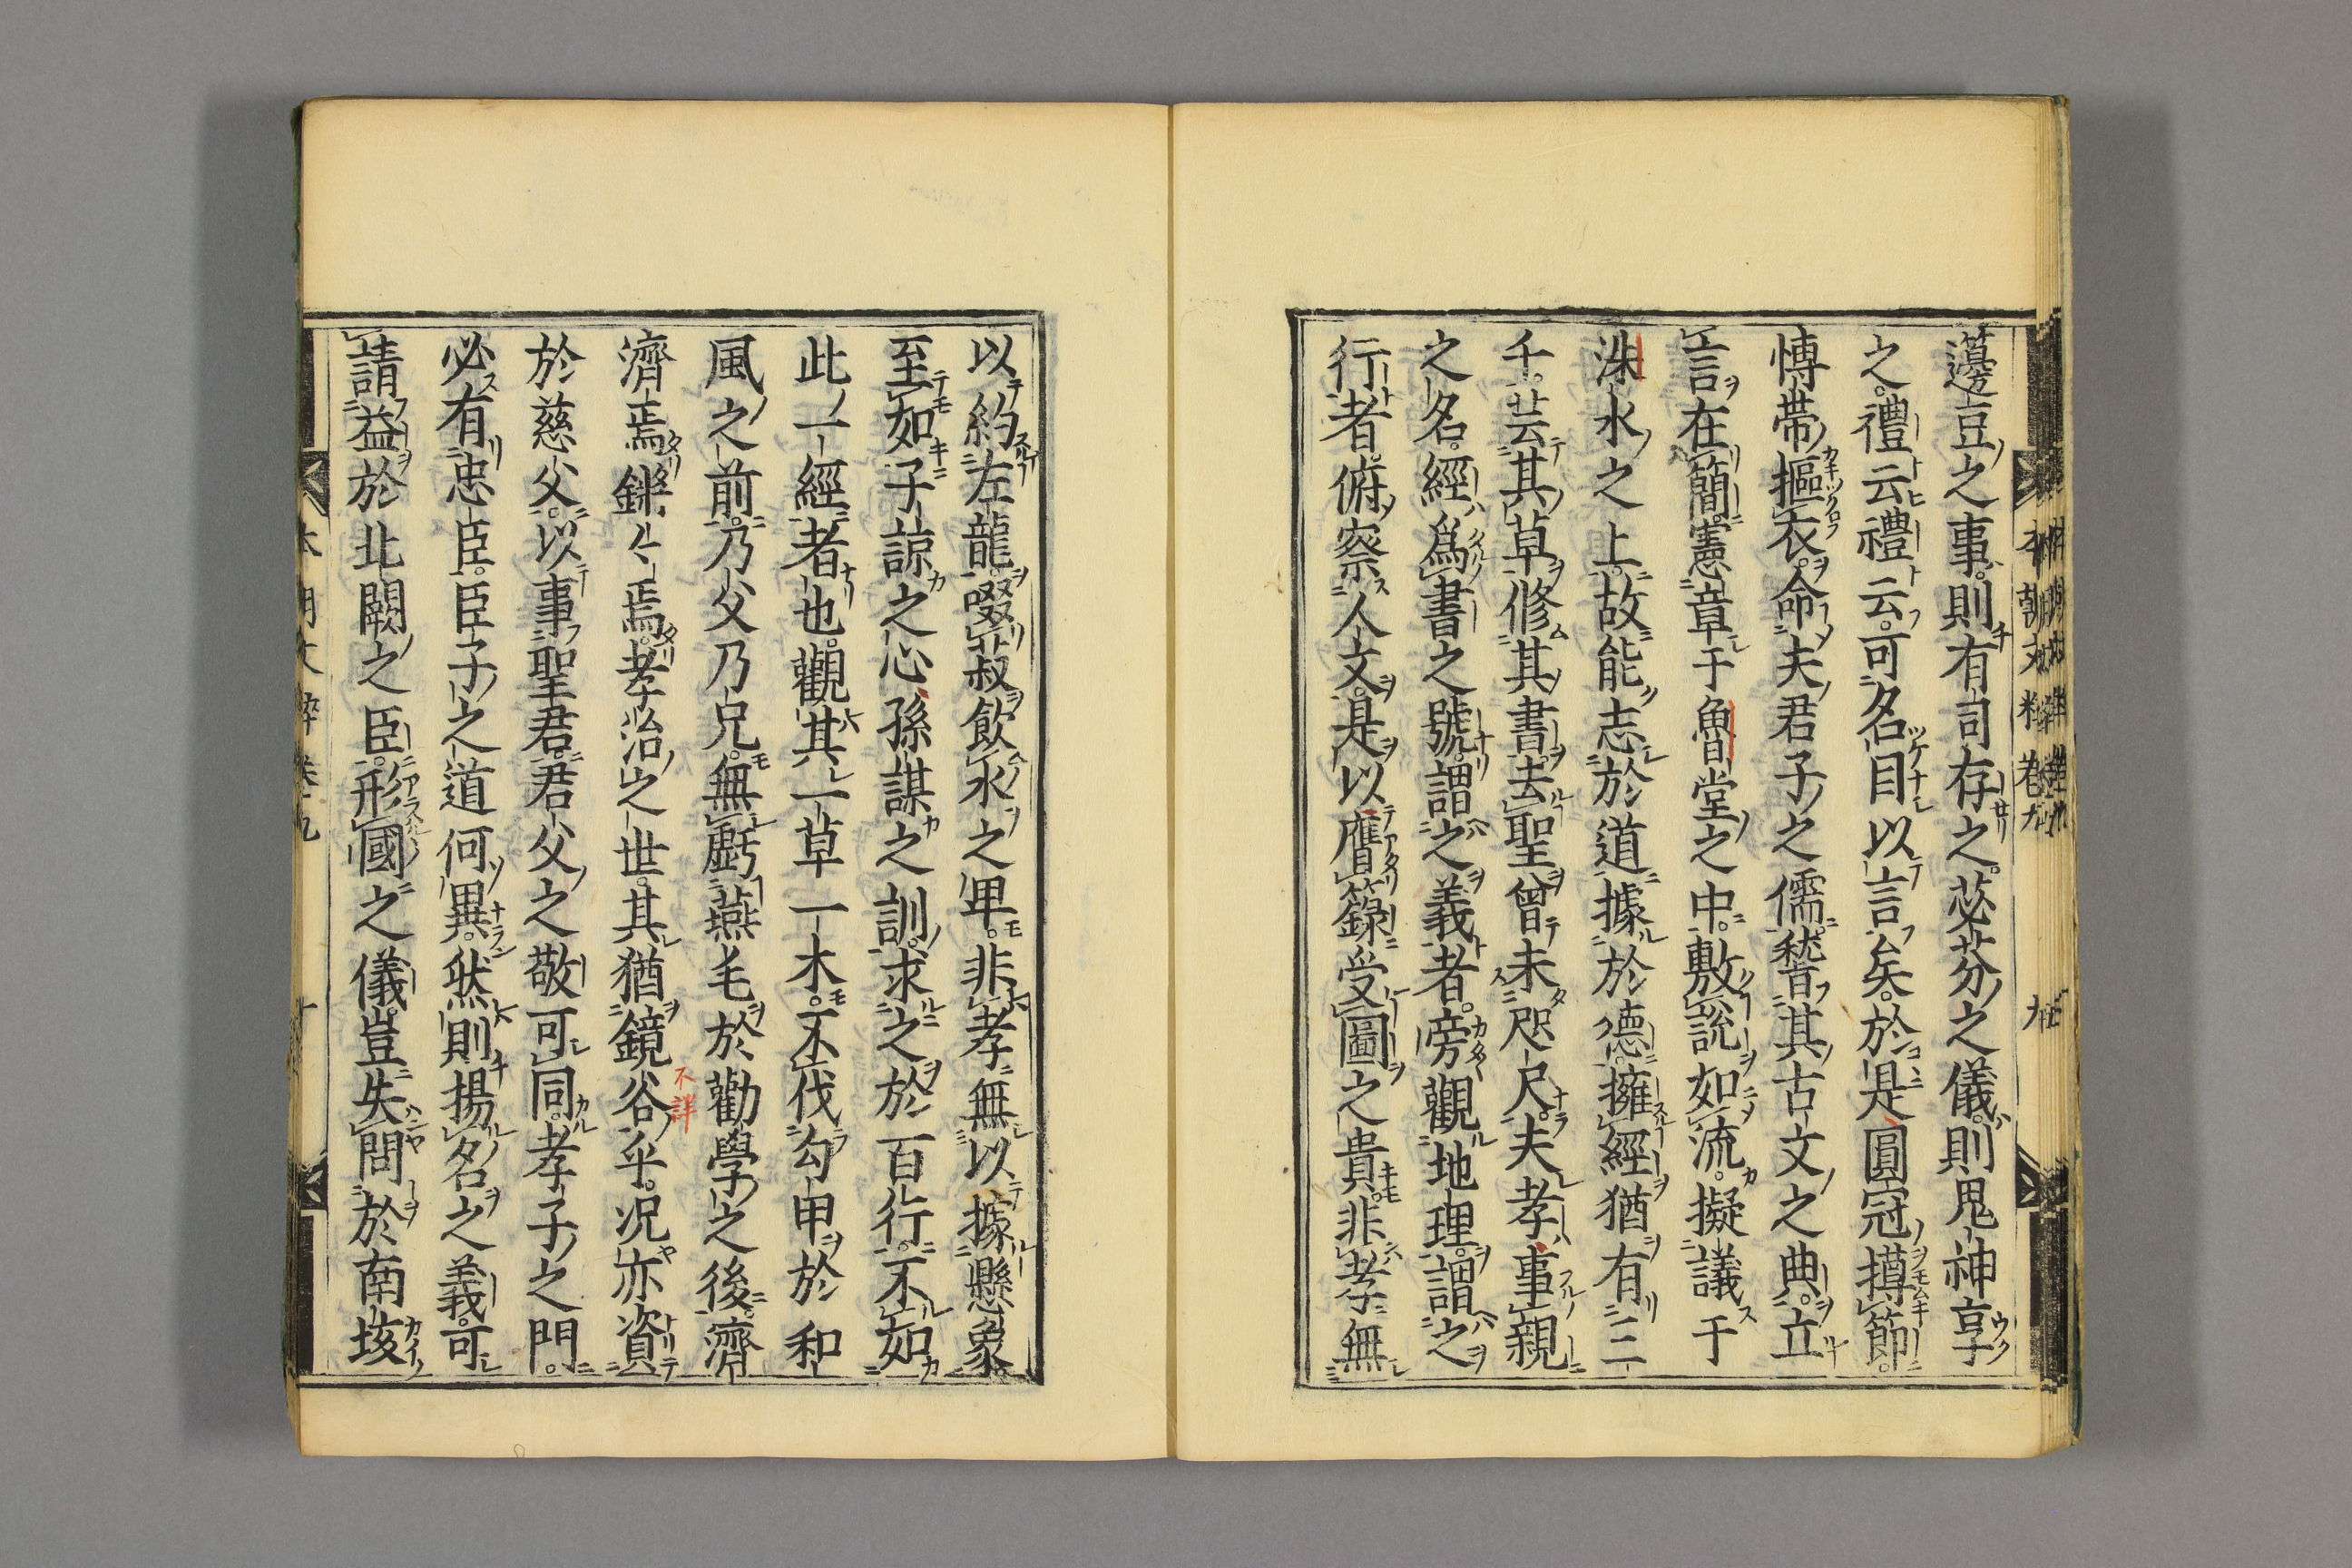 籩豆之事則有司存之苾芬之儀則鬼神享
之禮云禮云可名目以言矣於是圓冠摶節
愽帶摳衣命夫君子之儒稽其古文之典立
言在簡憲章于魯堂之中敷說如流擬議于
洙水之上故能志於道據於德擁經猶有三
千芸其草修其書去聖曾未咫尺夫孝事親
之名經爲書之號謂之義者旁觀地理謂之
行者俯察人文是以膺籙受圖之貴非孝無
以約左龍啜菽飮水之卑非孝無以據懸象
至如子諒之心孫謀之訓求之於百行不如
此一經者也觀其一草一木不伐勾甲於和
風之前乃父乃兄無虧燕毛於勸學之後濟
濟焉鏘々焉孝治之世其猶鏡谷乎况亦資
於慈父以事聖君君父之敬可同孝子之門
必有忠臣臣子之道何異然則揚名之義可
請益於北闕之臣形國之儀豈失問於南垓
本朝文粹卷九
九
不詳